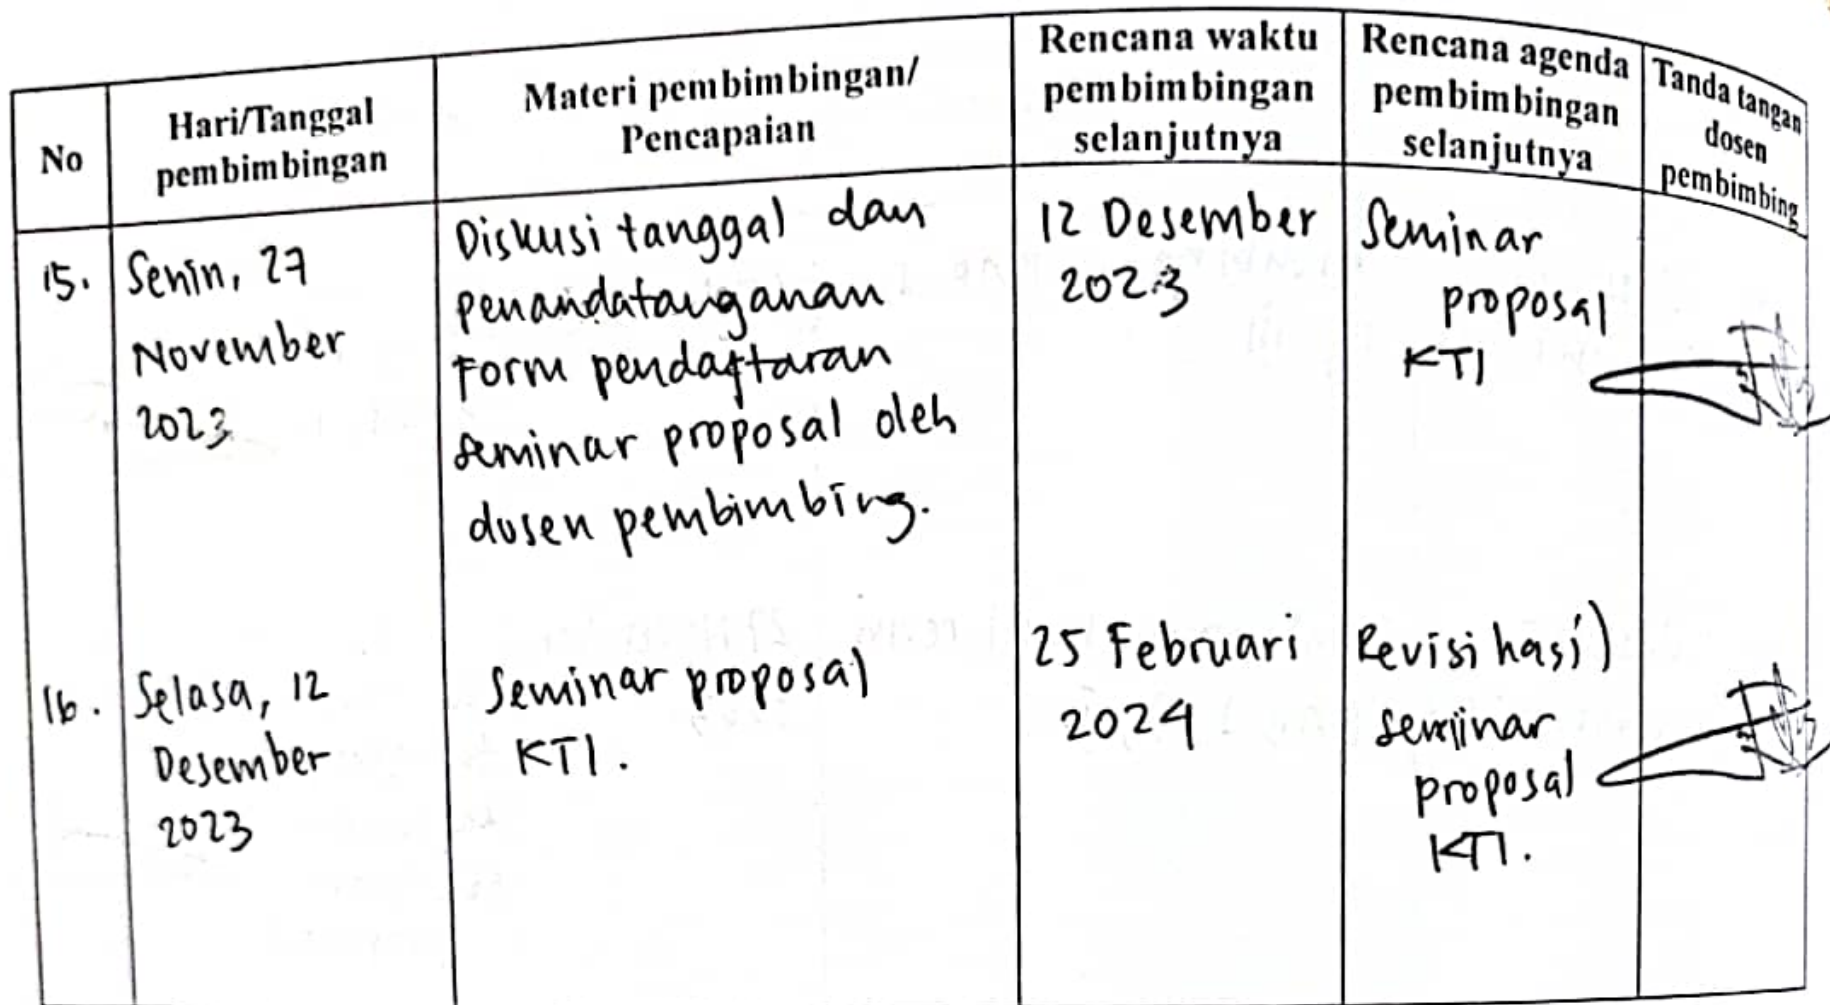 No
Hari/Tanggal
pembimbingan
Materi pembimbingan/
Pencapaian
Rencana waktu
pembimbingan
selanjutnya
Rencana agenda
pembimbingan
selanjutnya
Tanda tangan
dosen
pembimbing
15.
Senin, 27
November
2023
Diskusi tanggal dan
penandatanganan
Form pendaftaran
seminar proposal oleh
dosen pembimbing.
12 Desember
2023
Seminar
proposal
KTI
16.
Selasa, 12
Desember
2023
Seminar proposal
KTI.
25 Februari
2024
Revisi hasil
seminar
proposal
KTI.